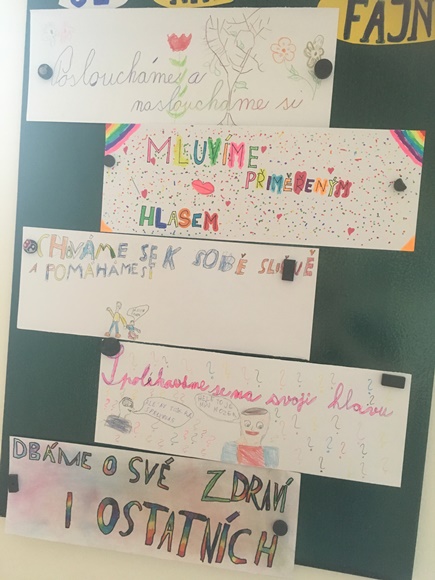 FAJN
Posloucháme a
nasloucháme si
MLUVÍME
PŘIMĚŘENÝM
HLASEM
CHOVÁME SE K SOBĚ SLUŠNĚ
A POMÁHÁME SI
Spoléháváme se na svoji hlavu
DBÁME O SVÉ ZDRAVÍ
I OSTATNÍCH